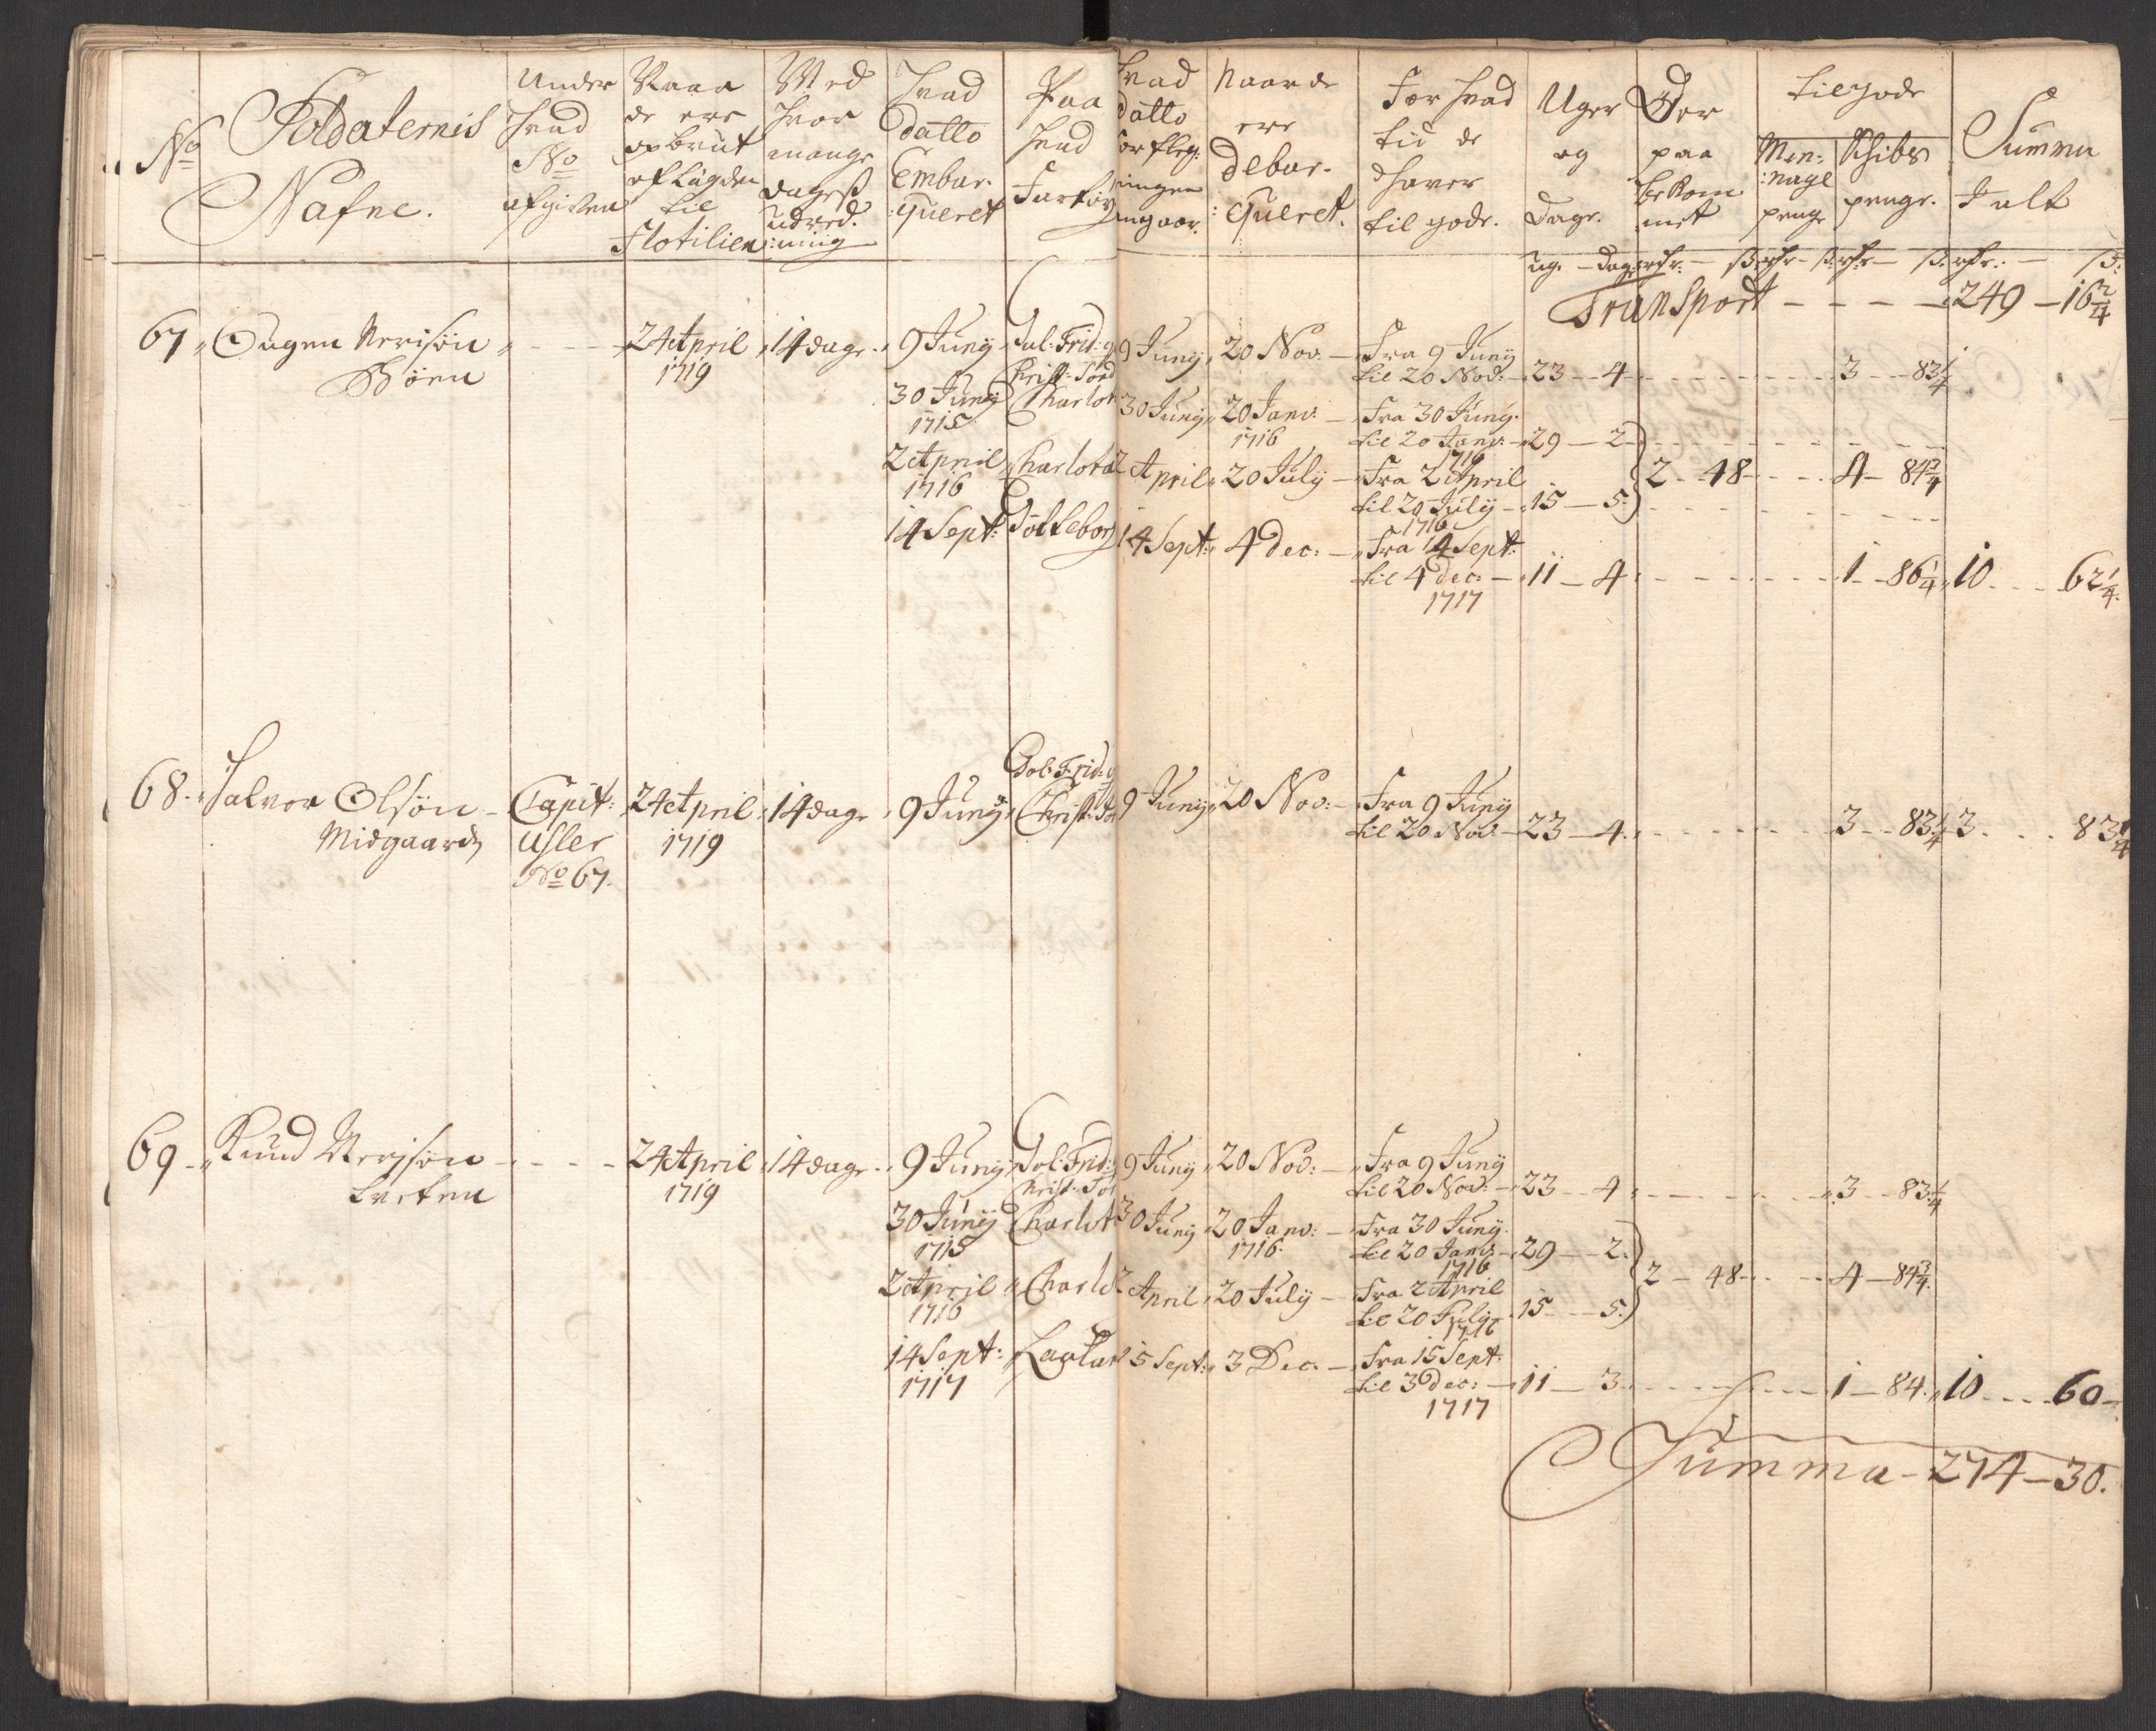 No
Soldaternis
Nafne.
Under
Hvad
No
afgiven
Naar
de ere
opbrut
af Lägden
til
Flotilien
Med
Hvor
mange
dages
udred:
:ning
Hvad
datto
Embar:
:queret
Paa
Hvad
Fartöy
Hvad
datto
forfleg:
ningen
angaar.
Naar de
ere
debar:
:queret.
For hvad
tid de
haver
til gode.
Uger
og
Dage.
Der
paa
bekom
met
tilgode
Men:
:nage
penge
Skibs
penge.
Summa
I alt
ug. - dag: rdr. - ß. rdr - ß. rdr - ß. rdr. - ß.
Transport - - - - 249 - 16 2/4
67 Aagen Nerisön - - - 24 April 14 dage 9 Juny Gul: Frid: 9 Juny 20 Nov: Fra 9 Juny
Böen 1719 Christ:
til 20 Nov: 23 - 4 - - - 3 - 83 1/4
30 Juny Charlot 30 Juny 20 Janv: Fra 30 Juny
1715 1716 til 20 Janv: 29 - 2
1716
2 April Charlota 2 April 20 July Fra 2 April 2 - 48 - - 4 - 84 3/4
1716 til 20 July 15 - 5
1716
14 Sept: Götteborg 14 Sept: 4 dec: Fra 14 Sept:
til 4 dec: 11 - 4 - - - 1 - 86 1/4 10 - - 62 1/4
1717
68 Halvor Olsön Capit: 24 April 14 dage 9 Juny Gol: Frid: 9 Juny 20 Nov: Fra 9 Juny
Midgaard Usler 1719 Christ: til 20 Nov: 23 - 4 - - - 3 - 83 1/4 3 - - 83 1/4
No 67.
69 Knud Nerisön - - - 24 April 14 dage 9 Juny Gol: Frid: 9 Juny 20 Nov: Fra 9 Juny
Tveten 1719 Christ: til 20 Nov: 23 - 4 - - - 3 - 83 1/4
30 Juny Charlot 30 Juny 20 Janv: Fra 30 Juny
1715 1716 til 20 Janv: 29 - 2
1716
2 April Charlo 2 April 20 July Fra 2 April 2 - 48 - - 4 - 84 3/4
1716 til 20 July 15 - 5
1716
14 Sept: 15 Sept: 3 Dec: Fra 15 Sept:
1717 til 3 dec: 11 - 3 - - - 1 - 84 10 - - 60 -
1717
Summa - 274 - 30.